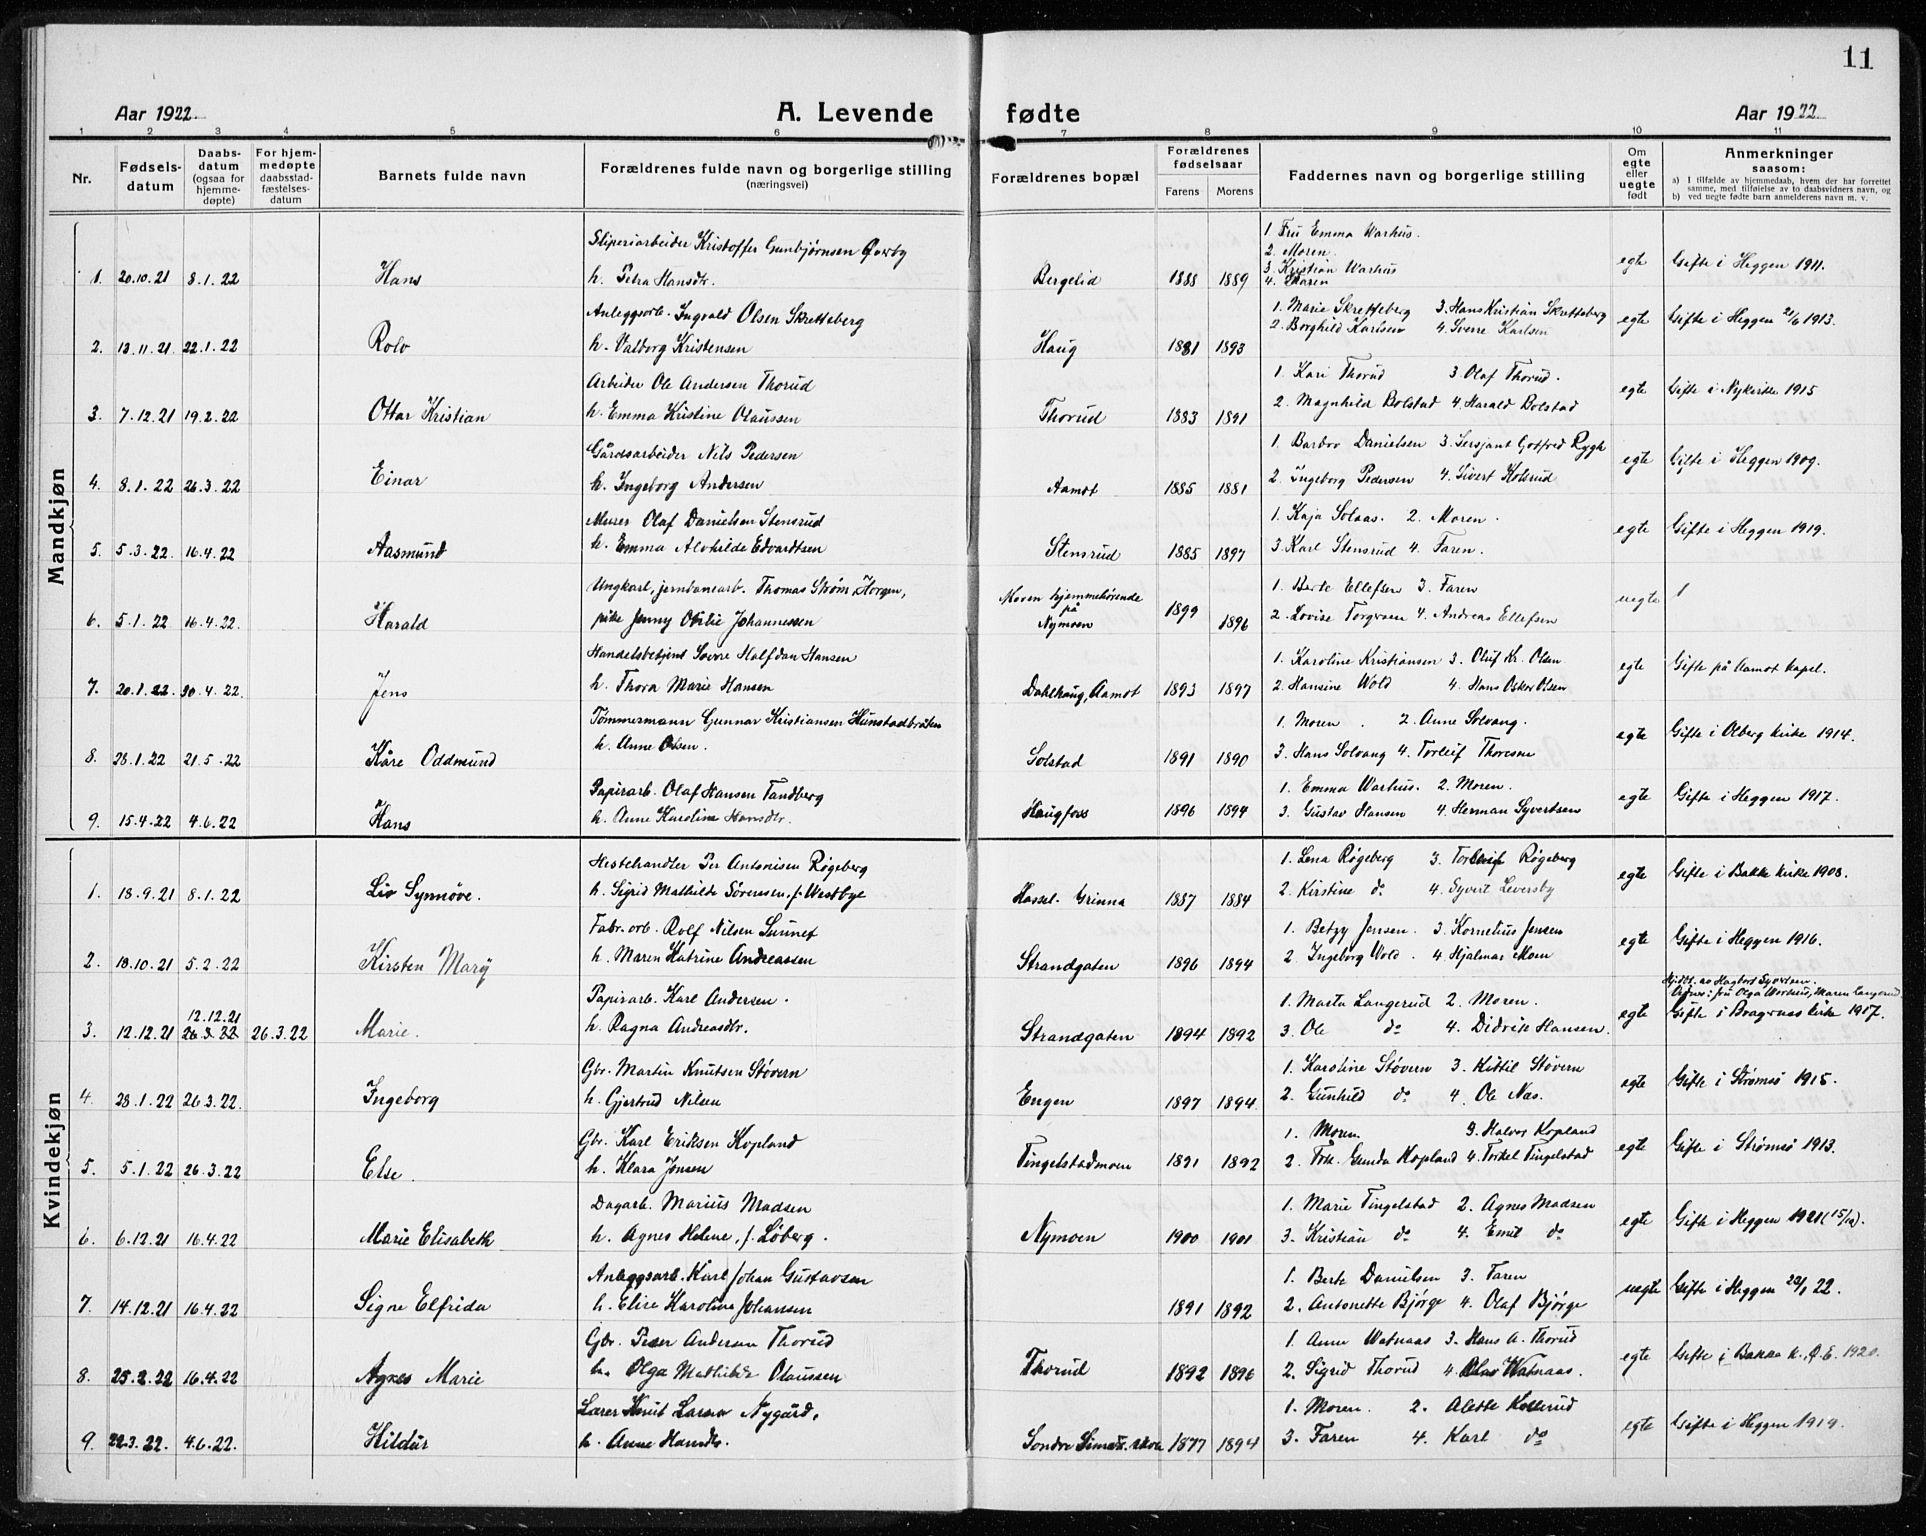 11
Aar 1922. A. Levende fødte Aar 1922.
1 2 3 4 5 6 7 8 9 10 11
Nr. Fødsels-datum Daabs-datum (ogsaa for hjemme-døpte) For hjem-medøpte daabsstad-fæstelses-datum Barnets fulde navn Forældrenes fulde navn og borgerlige stilling (næringsvei) Forældrenes bopæl Forældrenes fødselsaar Farens Morens Faddernes navn og borgerlige stilling Om egte eller uegte født Anmerkninger saasom:
a) I tilfælde av hjemmedaab, hvem der har forrettet samme, med tilføielse av to daabsvidners navn, og
b) ved uegte fødte barn anmelderens navn m. v.
Mandkjøn
Sliperiarbeider Kristoffer Gunbjørnsen Øverby 1. Fru Emma Warhus.
2. Moren.
1. 20.10.21 8.1.22 Hans h. Petra Hansdtr. Bergelid 1888 1889 3. Kristian Warhus egte Gifte i Heggen 1911.
4. Faren
Anleggsarb. Ingvald Olsen Skretteberg 1. Marie Skretteberg 3. Hans Kristian Skretteberg
2. 13.11.21. 22.1.22 Rolv h. Valborg Kristensen Haug 1881 1893 2. Borghild Karlsen 4. Sverre Karlsen egte Gifte i Heggen 21/6 1913.
Arbeider Ole Andersen Thorud 1. Kari Thorud 3. Olaf Thorud.
3. 7.12.21 19.2.22 Ottar Kristian h. Emma Kristine Olaussen Thorud 1883 1891 2. Magnhild Bolstad 4. Harald Bolstad egte Gifte i Nykirke 1915
Gårdsarbeider Nils Pedersen 1. Barbro Danielsen 3. Sersjant Gotfred Rygh
4. 8.1.22 26.3.22 Einar h. Ingeborg Andersen Aamot 1885 1881 2. Ingeborg Pedersen 4. Sivert Kolsrud egte Gifte i Heggen 1909.
Murer Olaf Danielsen Stensrud 1. Kaja Solaas. 2. Moren.
5. 5.3.22 16.4.22 Aasmund h. Emma Alvhilde Edvardtsen Stensrud 1885 1897 3. Karl Stensrud 4. Faren. egte Gifte i Heggen 1919.
Ungkarl, jernbanearb. Thomas Strøm Horgen, Moren hjemmehørende på Nymoen 1. Berte Ellefsen 3. Faren
6. 5.1.22 16.4.22. Harald pike Jenny Otilie Johannessen 1899 1896 2. Lovise Torgersen 4. Andreas Ellefsen uegte
Handelsbetjent Sverre Halfdan Hansen 1. Karoline Kristiansen 3. Oluf Kr. Olsen
7. 20.1.22. 30.4.22 Jens h. Thora Marie Hansen Dahlhaug, Aamot 1893 1897 2. Hansine Wold 4. Hans Oskar Olsen egte Gifte på Aamot kapel.
Tømmermann Gunnar Kristiansen Hunstadbråten 1. Moren. 2. Anne Solvang.
8. 28.1.22 21.5.22 Kåre Oddmund h. Anne Olsen. Solstad 1891 1890 3. Hans Solvang 4. Torleif Thoresen egte Gifte i Olberg kirke 1914.
Papirarb. Olaf Hansen Tandberg 1. Emma Warhus. 2. Moren.
9. 15.4.22 4.6.22 Hans h. Anne Karoline Hansdtr. Haugfoss 1896 1894 3. Gustav Hansen 4. Herman Syvertsen egte Gifte i Heggen 1917.
Kvindekjøn
Hestehandler Per Antonisen Røgeberg 1. Lena Røgeberg 3. Torleif Røgeberg
1. 18.9.21 8.1.22 Liv Synnøve. h. Sigrid Mathilde Sørensen, f. Westbye Hassel. Grinna 1887 1884 2. Kirstine do 4. Syvert Leversby egte Gifte i Bakke kirke 1908.
Fabr.arb. Rolf Nilsen Sunnef 1. Betzy Jensen. 3. Kornelius Jensen
2. 18.10.21 5.2.22 Kirsten Mary h. Maren Katrine Andreassen Strandgaten 1896 1894 2. Ingeborg Wold. 4. Hjalmar Moen egte Gifte i Heggen 1916.
Papirarb. Karl Andersen. 1. Marta Langerud 2. Moren. Hjdbt. av Hagbart Syvertsen.
3. 12.12.21 12.12.21 26.3.22 26.3.22 Marie. h. Ragna Andreasdtr. Strandgaten 1894 1892 3. Ole do 4. Didrik Hansen. egte Gifte i Bragernes kirke 1917.
Gbr. Martin Knutsen Støvern 1. Karoline Støvern 3. Kittil Støvern
4. 28.1.22 26.3.22. Ingeborg h. Gjertrud Nilsen Engen 1897 1894 2. Gunhild do 4. Ole Nas. egte Gifte i Strømsø 1915.
Gbr. Karl Eriksen Kopland 1. Moren. 3. Halvor Kopland
5. 5.1.22 26.3.22 Else. h. Klara Jensen Tingelstadmoen 1891 1892 2. Frk. Gunda Kopland 4. Torkel Tingelstad egte Gifte i Strømsö 1913.
Dagarb. Marius Madsen 1. Marie Tingelstad 2. Agnes Madsen
6. 6.12.21 16.4.22 Marie Elisabeth h. Agnes Helene, f. Löberg. Nymoen 1900 1901 3. Kristian do 4. Emil do egte Gifte i Heggen 1921 (15/10).
Anleggsarb. Karl Johan Gustavsen 1. Berte Danielsen 3. Faren
7. 14.12.21 16.4.22 Signe Elfrida h. Elise Karoline Johansen 1891 1892 2. Antonette Bjørge 4. Olaf Bjørge uegte Gifte i Heggen 28/1 22.
Gbr. Peder Andersen Thorud 1. Anne Watnaas 3. Hans A. Thorud
8. 25.2.22 16.4.22 Agnes Marie h. Olga Mathilde Olaussen Thorud 1892 1896 2. Sigrid Thorud 4. Olav Watnaas. egte Gifte i Bakke k. Ø.E. 1920.
Lærer Knut Larsen Nygård. 1. Moren. 2. Alette Kollerud
9. 22.3.22. 4.6.22. Hildur h. Anne Hansdtr. Sondre Simos. skole 1877 1894 3. Faren 4. Karl do egte Gifte i Heggen 1919.